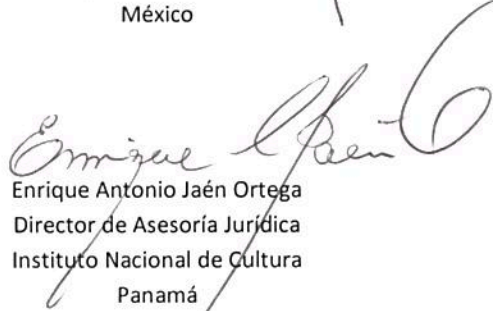 México
Enrique A Jaén O
Enrique Antonio Jaén Ortega
Director de Asesoría Jurídica
Instituto Nacional de Cultura
Panamá